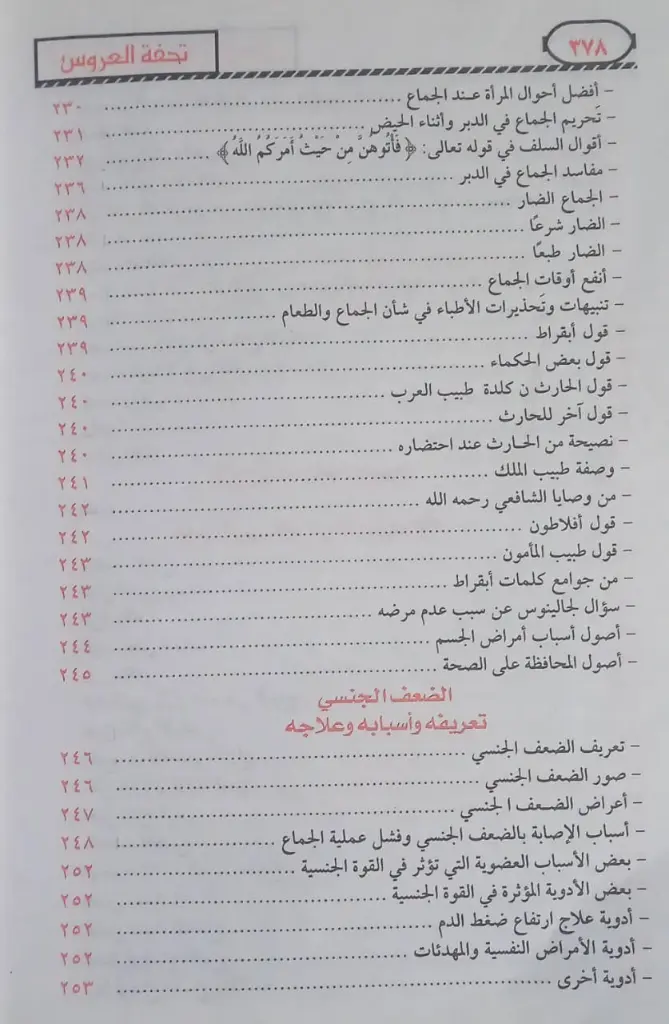 ٣٧٨
تحفة العروس
- أفضل أحوال المرأة عند الجماع ........ ٢٣٠
- تَحريم الجماع في الدبر وأثناء الحيض ........ ٢٣١
- أقوال السلف في قوله تعالى: ﴿ فَأْتُوهُنَّ مِنْ حَيْثُ أَمَرَكُمُ اللَّهُ ﴾ ........ ٢٣٢
- مفاسد الجماع في الدبر ........ ٢٣٦
- الجماع الضار ........ ٢٣٨
- الضار شرعًا ........ ٢٣٨
- الضار طبعًا ........ ٢٣٨
- أنفع أوقات الجماع ........ ٢٣٩
- تنبيهات وتَحذيرات الأطباء في شأن الجماع والطعام ........ ٢٣٩
- قول أبقراط ........ ٢٣٩
- قول بعض الحكماء ........ ٢٤٠
- قول الحارث ن كلدة طبيب العرب ........ ٢٤٠
- قول آخر للحارث ........ ٢٤٠
- نصيحة من الحارث عند احتضاره ........ ٢٤٠
- وصفة طبيب الملك ........ ٢٤١
- من وصايا الشافعي رحمه الله ........ ٢٤٢
- قول أفلاطون ........ ٢٤٢
- قول طبيب المأمون ........ ٢٤٣
- من جوامع كلمات أبقراط ........ ٢٤٣
- سؤال لجالينوس عن سبب عدم مرضه ........ ٢٤٣
- أصول أسباب أمراض الجسم ........ ٢٤٤
- أصول المحافظة على الصحة ........ ٢٤٥
الضعف الجنسي
تعريفه وأسبابه وعلاجه
- تعريف الضعف الجنسي ........ ٢٤٦
- صور الضعف الجنسي ........ ٢٤٦
- أعراض الضعف الجنسي ........ ٢٤٧
- أسباب الإصابة بالضعف الجنسي وفشل عملية الجماع ........ ٢٤٨
- بعض الأسباب العضوية التي تؤثر في القوة الجنسية ........ ٢٥٢
- بعض الأدوية المؤثرة في القوة الجنسية ........ ٢٥٢
- أدوية علاج ارتفاع ضغط الدم ........ ٢٥٢
- أدوية الأمراض النفسية والمهدئات ........ ٢٥٢
- أدوية أخرى ........ ٢٥٣